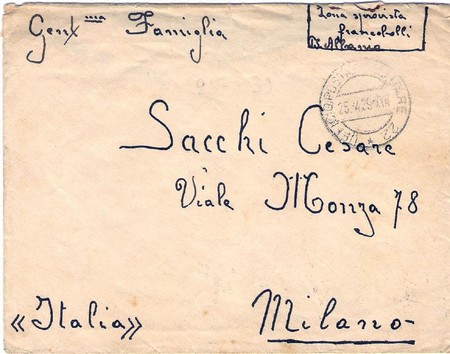 Gent.ma Famiglia
Zona sprovista
francobolli
Albania
Sacchi Cesare
Viale Monza 78
«Italia»
Milano